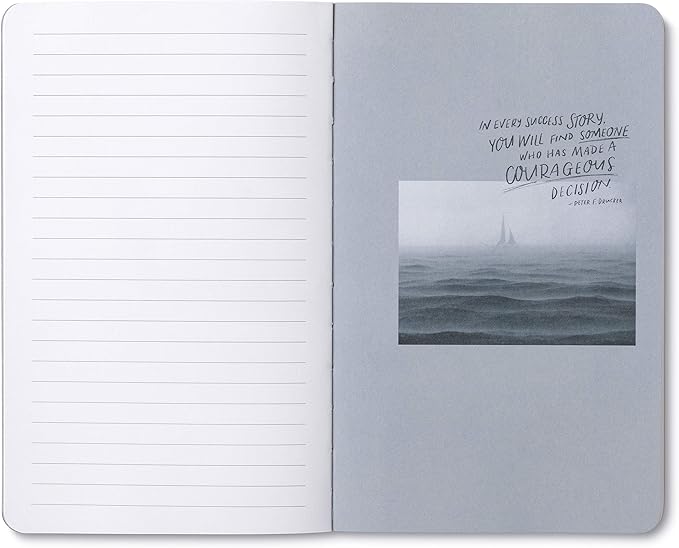 IN EVERY SUCCESS STORY,
YOU WILL FIND SOMEONE
WHO HAS MADE A
COURAGEOUS
DECISION
- PETER F. DRUCKER